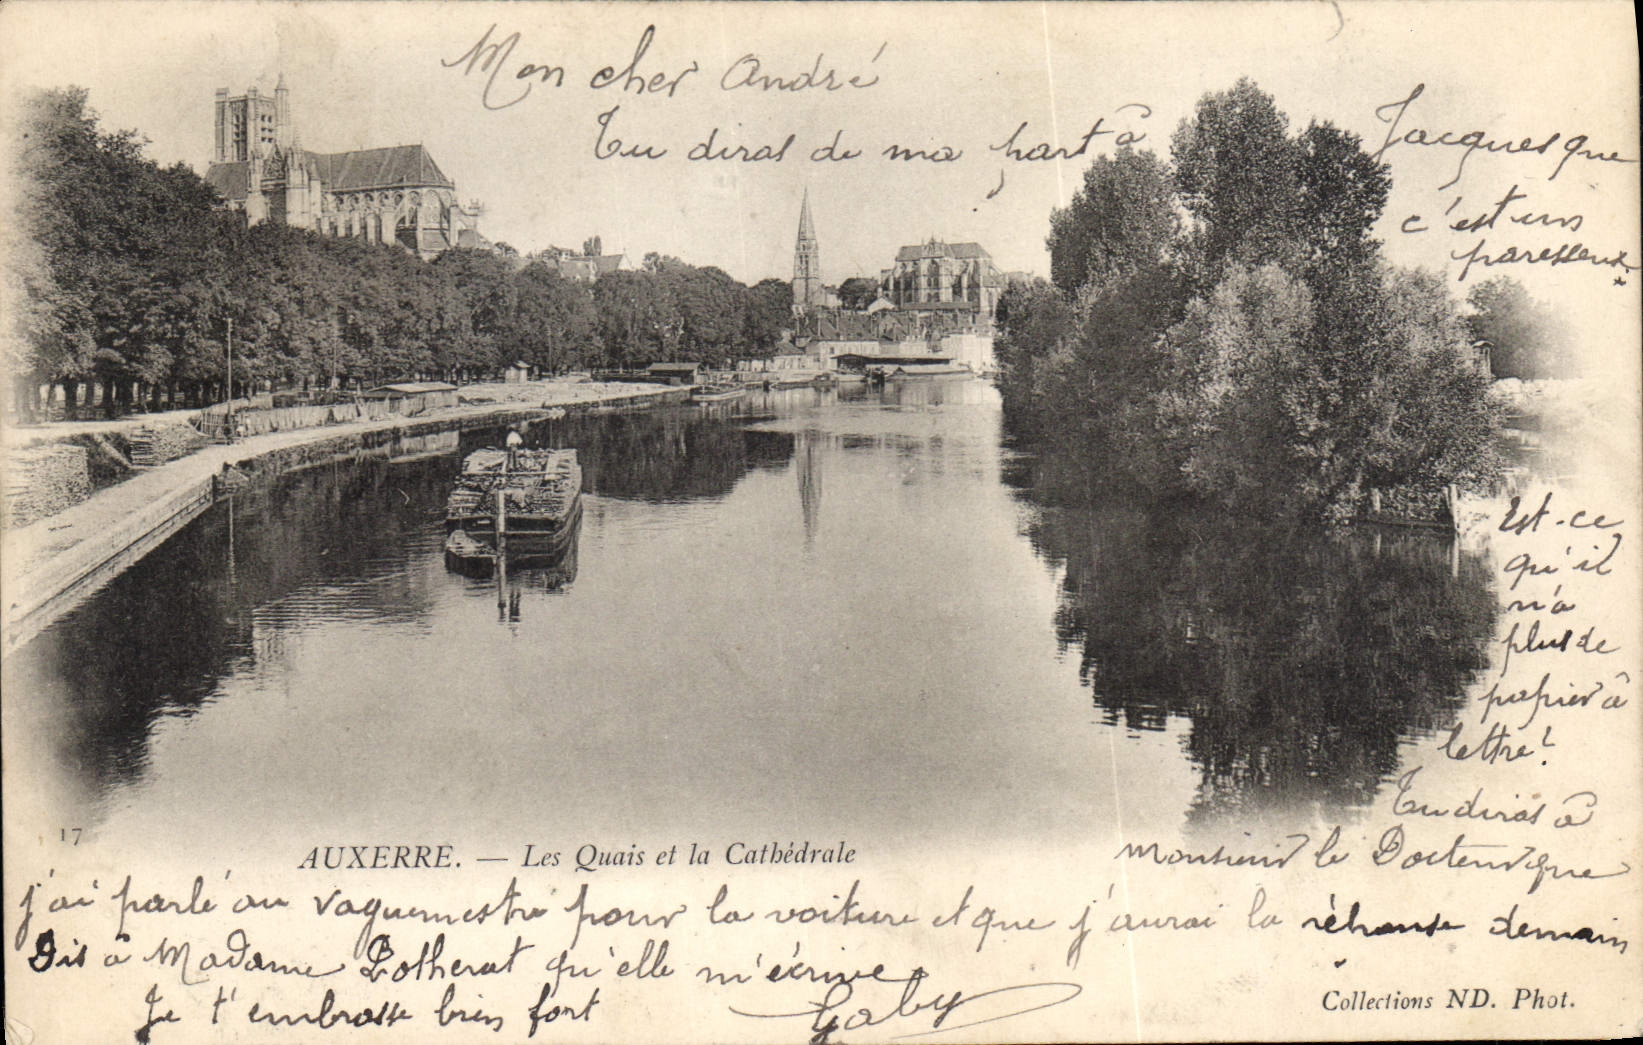 Mon cher André
Tu diras de ma part à
Jacques que
c'est un
paresseux.
Est-ce
qu'il
n'a
plus de
papier à
lettre?
Tu diras à
Monsieur le Docteur que
17
AUXERRE. — Les Quais et la Cathédrale
j'ai parlé au vaguemestre pour la voiture et que j'aurai la réponse demain
Dis à Madame Potherat qu'elle m'écrive
Je t'embrasse bien fort
Gaby
Collections ND. Phot.